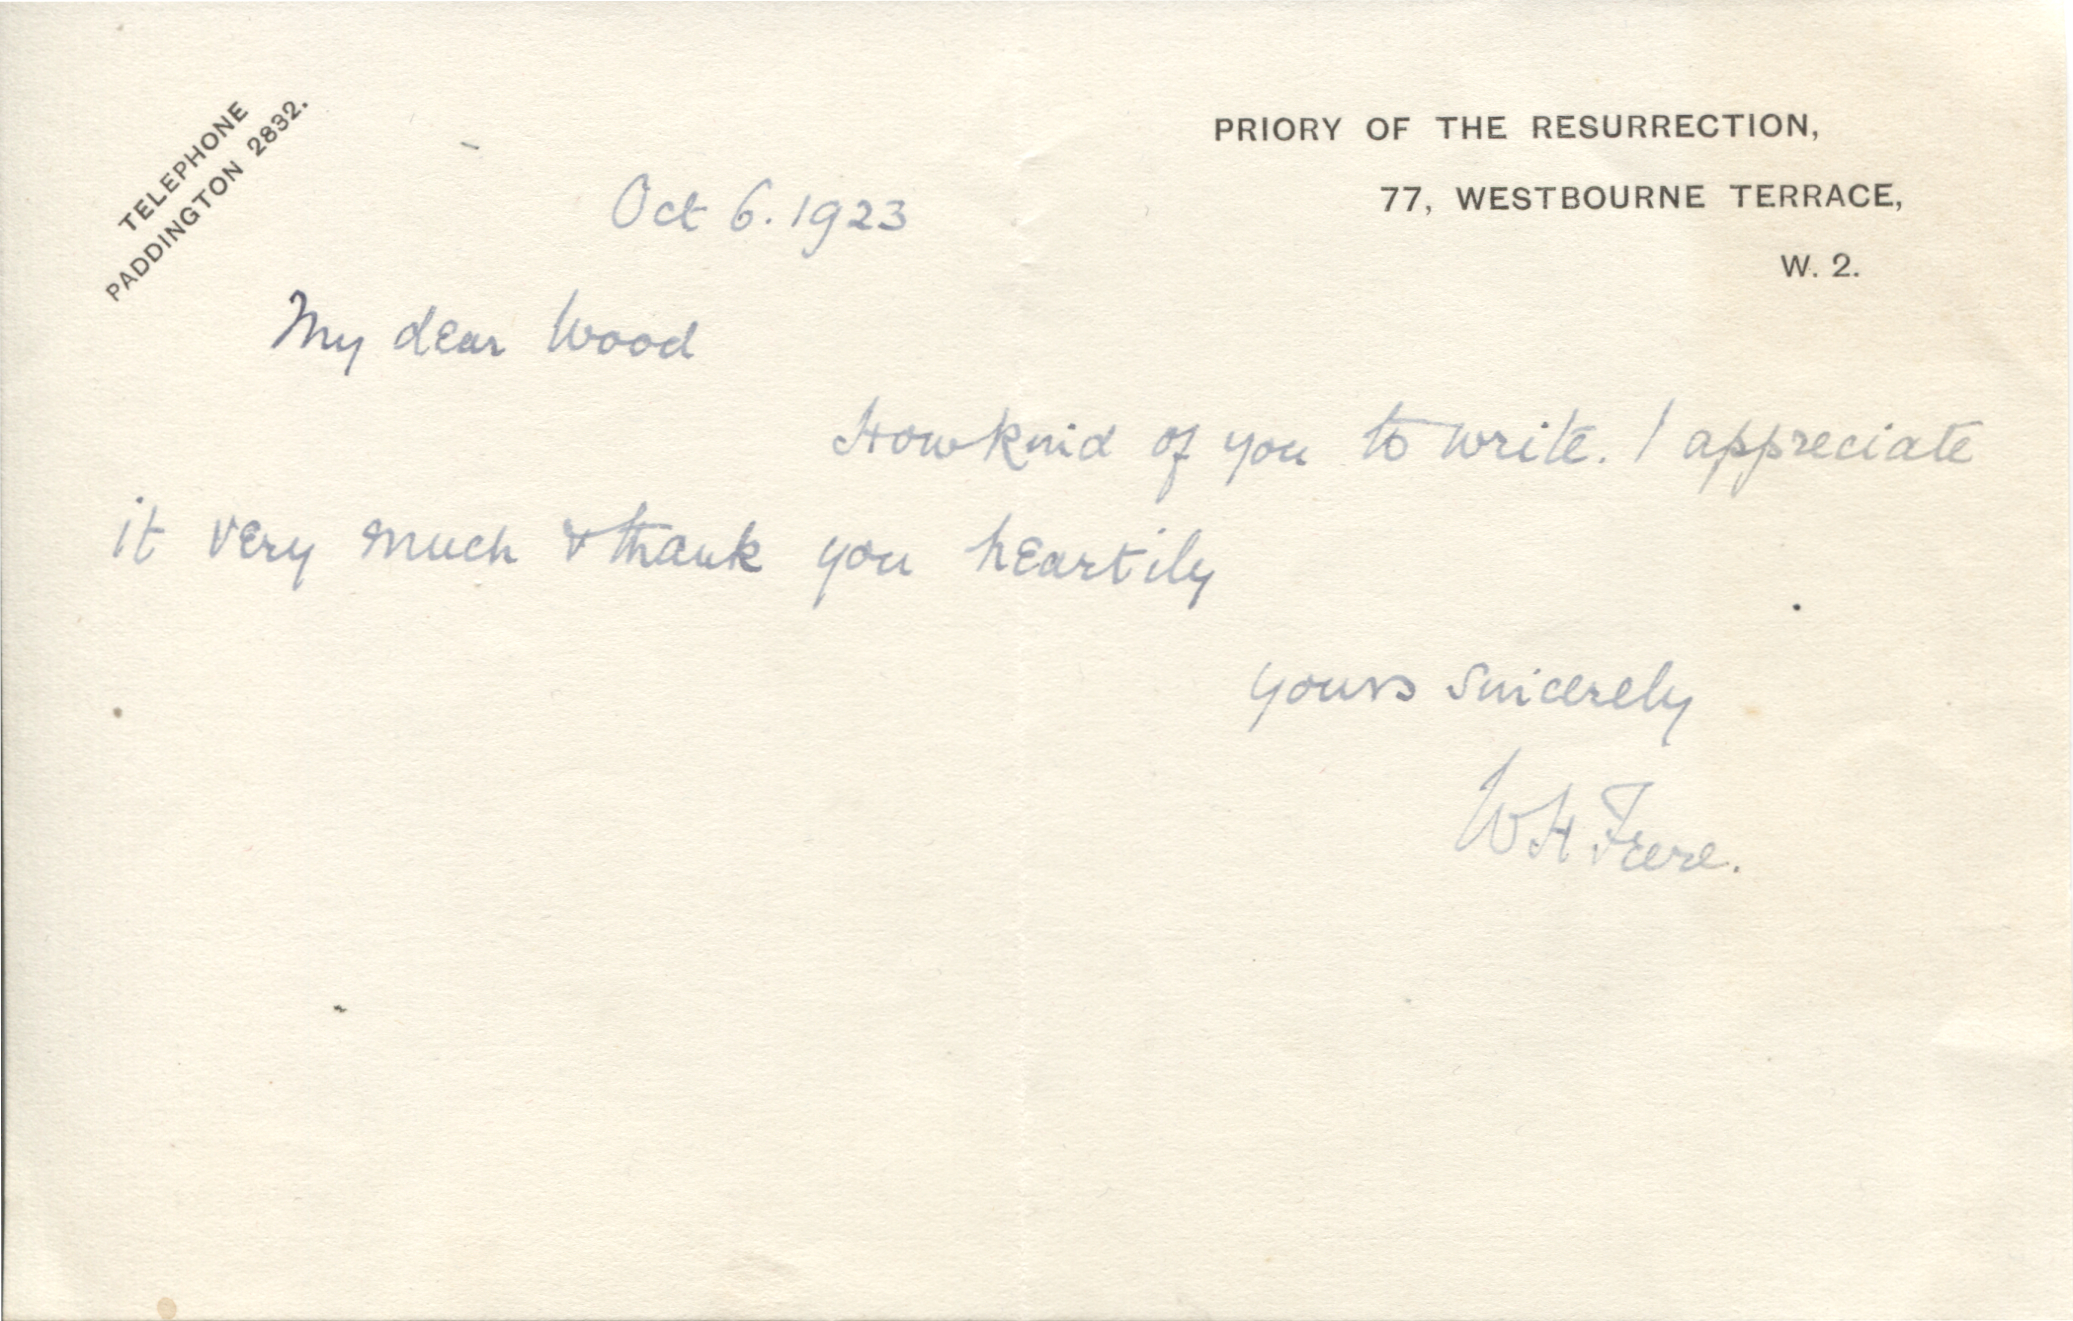 TELEPHONE
PADDINGTON 2832.
PRIORY OF THE RESURRECTION,
77, WESTBOURNE TERRACE,
W. 2.
Oct 6. 1923
My dear Wood
How kind of you to write. I appreciate
it very much & thank you heartily
yours sincerely
W H Frere.